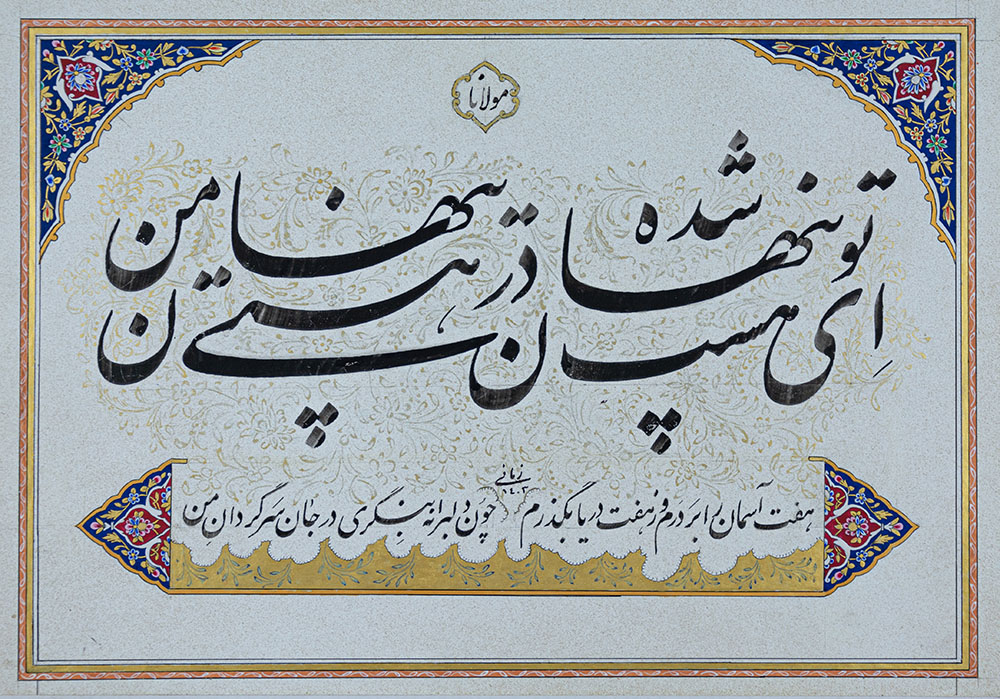 مولانا
ای هست تو پنهان شده در هستی پنهان من
هفت آسمان را بردرم وز هفت دریا بگذرم چون دلبرانه بنگری در جان سرگردان من
زمانی
۱۴۰۲